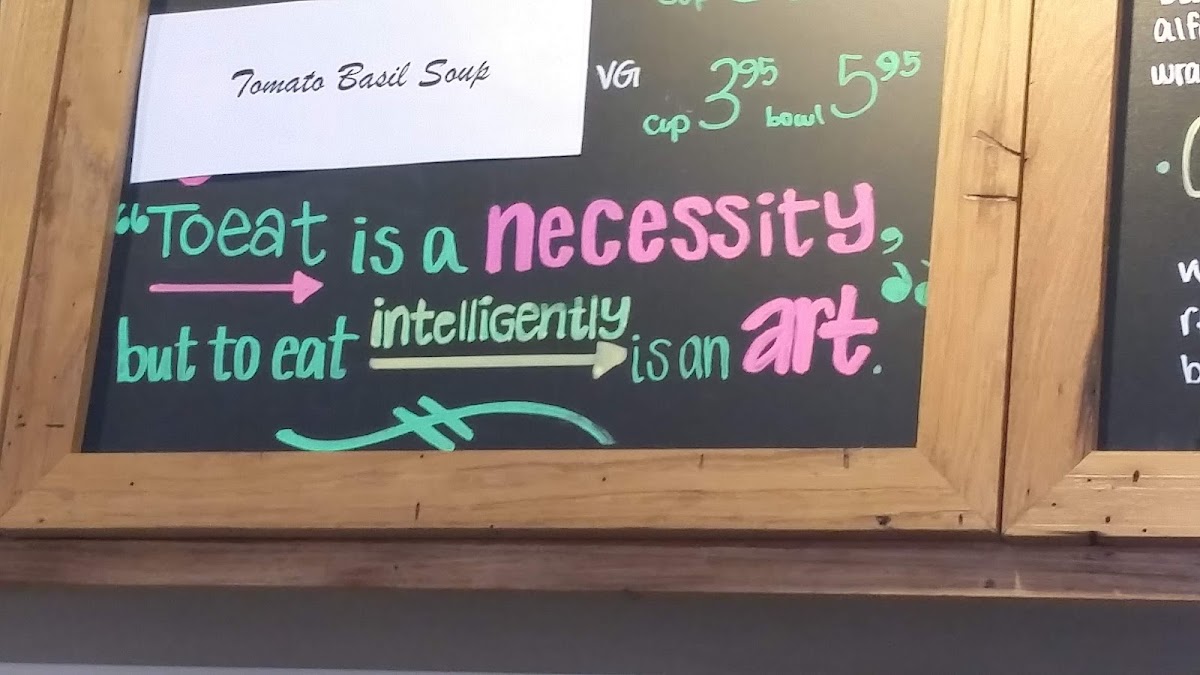 cup
Tomato Basil Soup VG cup 3.95 bowl 5.95
“To eat is a necessity,
but to eat intelligently is an art.”